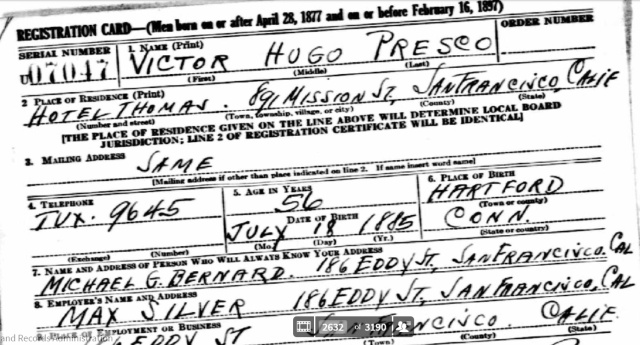 REGISTRATION CARD—(Men born on or after April 28, 1877 and on or before February 16, 1897)
SERIAL NUMBER 1. NAME (Print) ORDER NUMBER
U07047 VICTOR HUGO PRESCO
(First) (Middle) (Last)
2 PLACE OF RESIDENCE (Print)
HOTEL THOMAS. 891 MISSION ST, SAN FRANCISCO, CALIF
(Number and street) (Town, township, village, or city) (County) (State)
[THE PLACE OF RESIDENCE GIVEN ON THE LINE ABOVE WILL DETERMINE LOCAL BOARD
JURISDICTION; LINE 2 OF REGISTRATION CERTIFICATE WILL BE IDENTICAL]
3. MAILING ADDRESS
SAME
[Mailing address if other than place indicated on line 2. If same insert word same]
4. TELEPHONE 5. AGE IN YEARS 6. PLACE OF BIRTH
TUX. 9645 56 HARTFORD
DATE OF BIRTH (Town or county)
JULY 18 1885 CONN.
(Exchange) (Number) (Mo.) (Day) (Yr.) (State or country)
7. NAME AND ADDRESS OF PERSON WHO WILL ALWAYS KNOW YOUR ADDRESS
MICHAEL G. BERNARD. 186 EDDY ST, SAN FRANCISCO. CAL
8. EMPLOYER'S NAME AND ADDRESS
MAX SILVER 186 EDDY ST, SAN FRANCISCO, CAL
PLACE OF EMPLOYMENT OR BUSINESS
EDDY ST FRANCISCO. CALIF.
2632 of 3190
and Records Administration (Town) (County) (State)